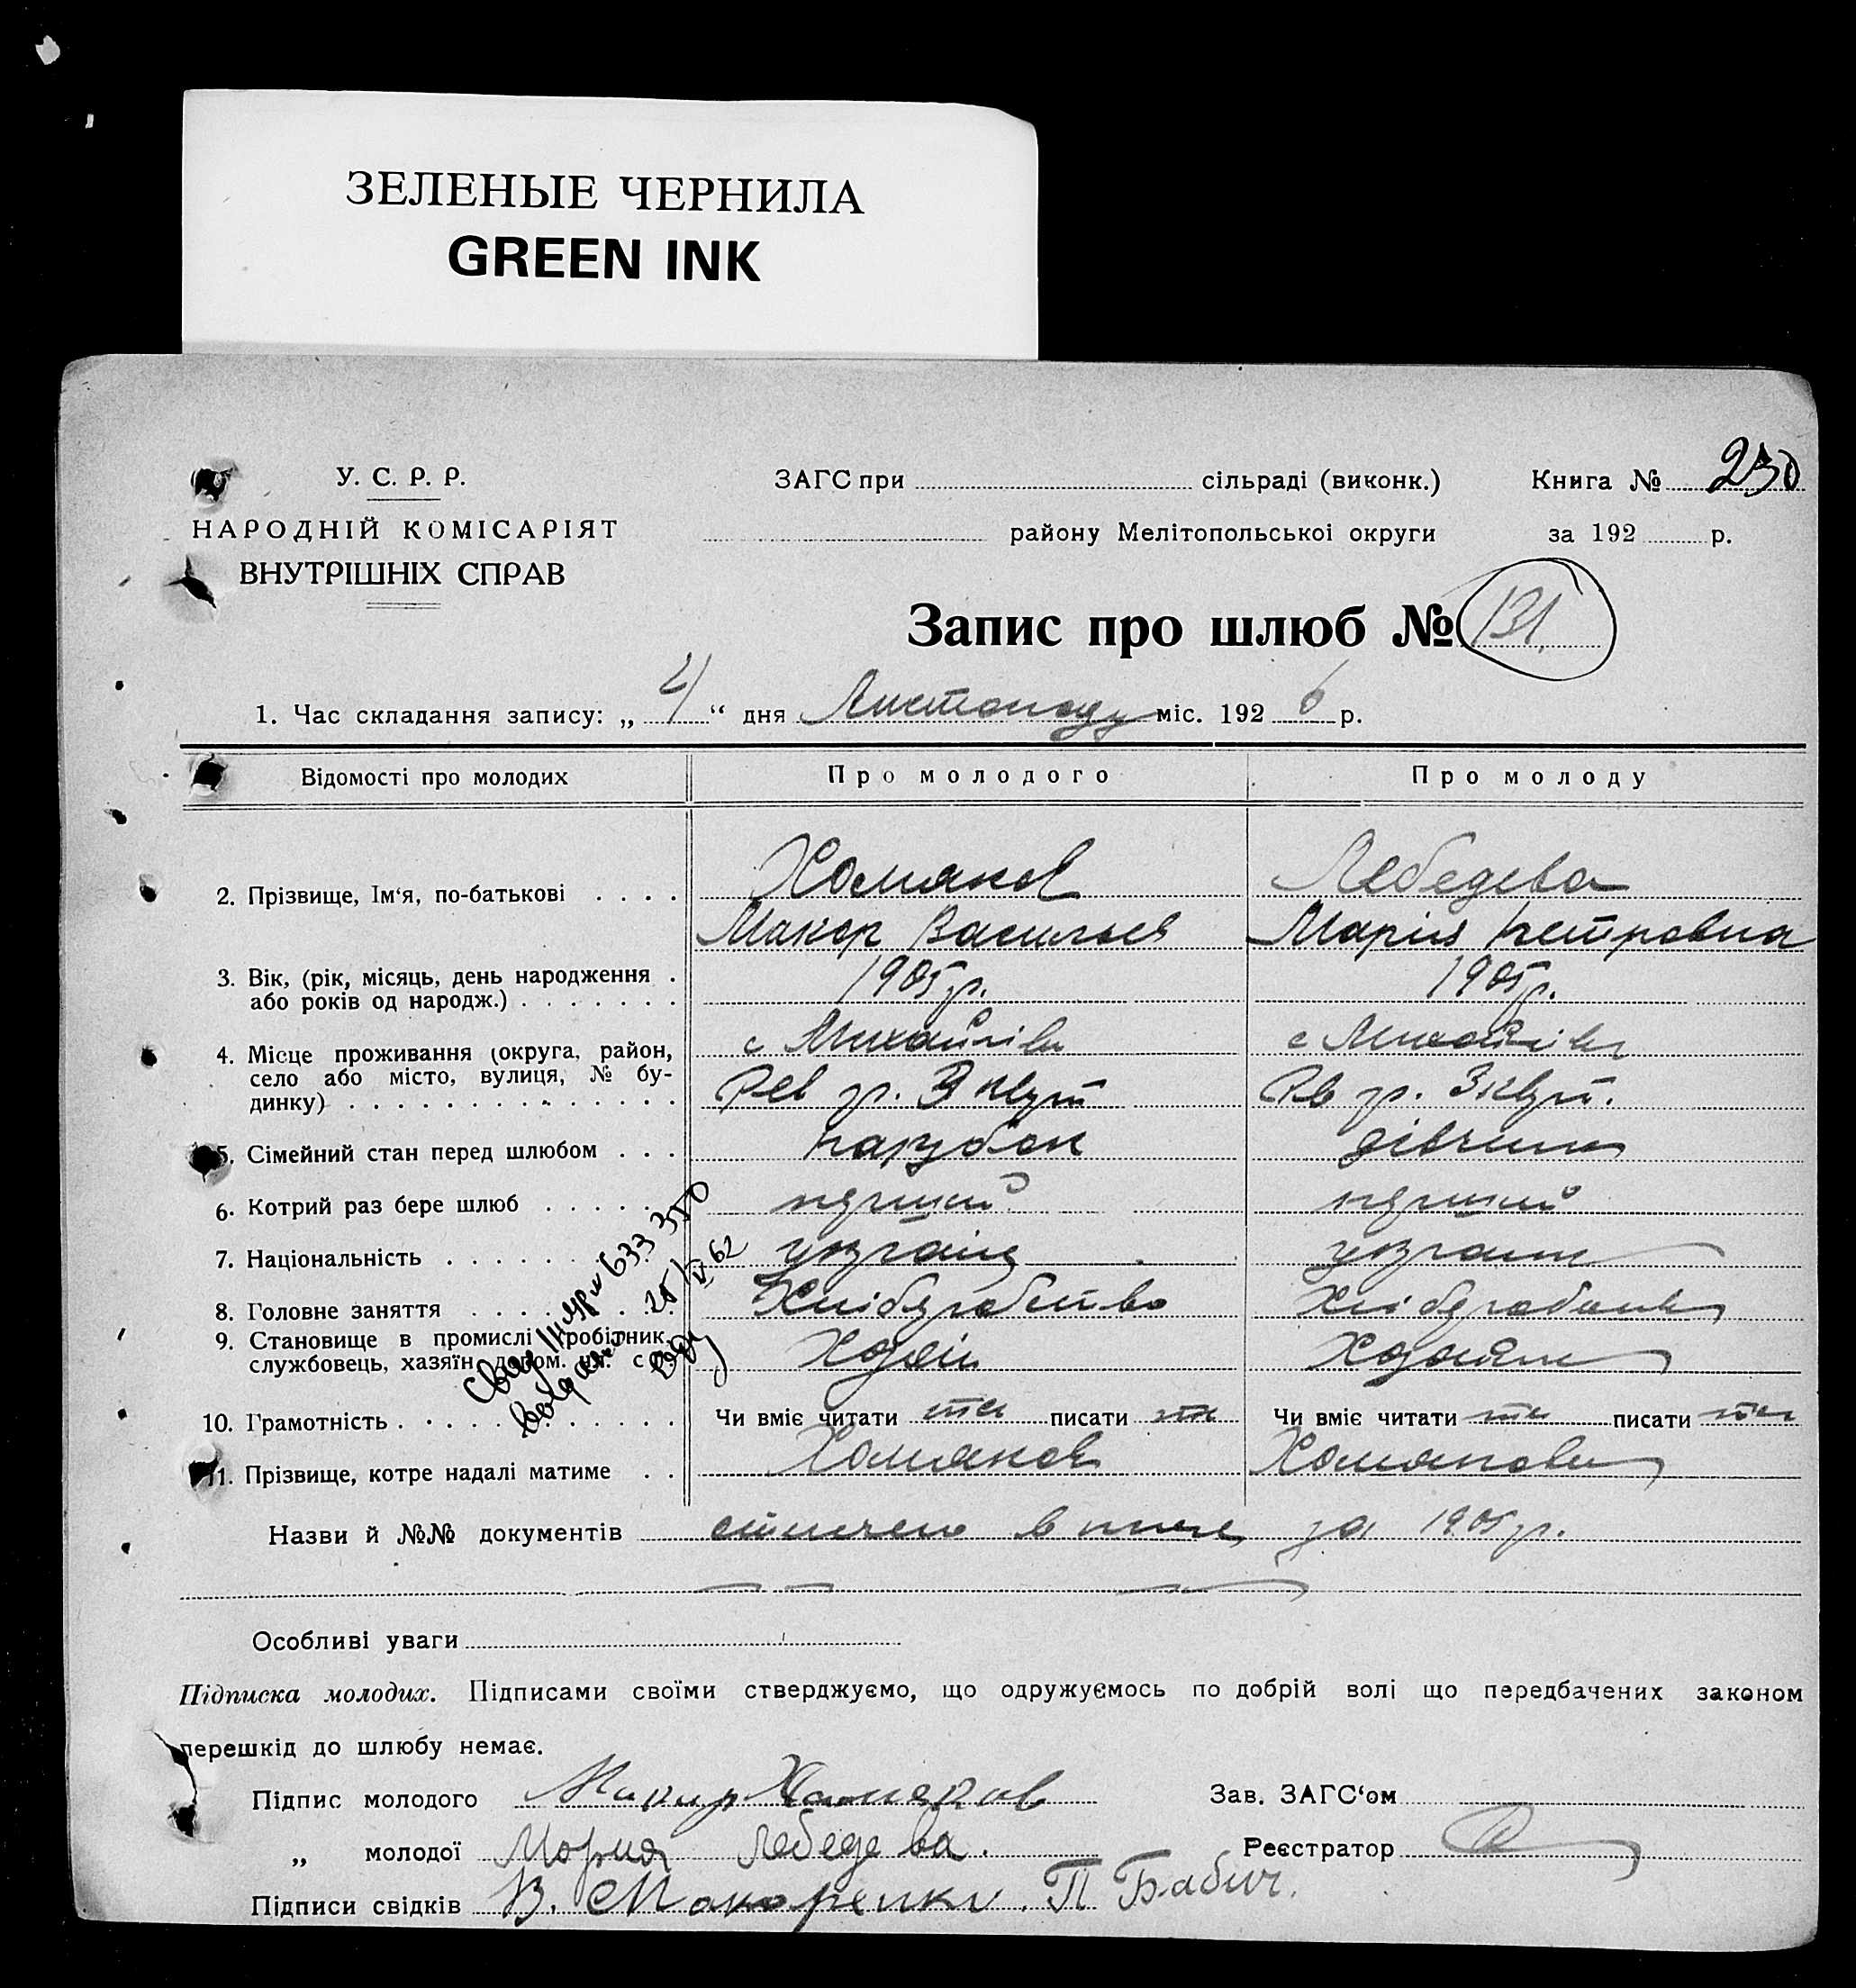 ЗЕЛЕНЫЕ ЧЕРНИЛА
GREEN INK
У. С. Р. Р.
НАРОДНІЙ КОМІСАРІЯТ
ВНУТРІШНІХ СПРАВ
ЗАГС при сільраді (виконк.)
району Мелітопольської округи
Книга № 230
за 192 р.
Запис про шлюб № 131
1. Час складання запису: „ 4 “ дня Листопаду міс. 192 6 р.
Відомості про молодих Про молодого Про молоду
2. Прізвище, Ім‘я, по-батькові . . . . Хомяков Лебедева
Макар Васильев Марія Петровна
3. Вік, (рік, місяць, день народження . 1905 р. 1905 р.
або років од народж.) . . . . . . .
4. Місце проживання (округа, район, с Михайлівка с Михайлівка
село або місто, вулиця, № бу-
динку) . . . . . . . . . . . . . Рев гр. 3 кут Рев гр. 3 кут.
5. Сімейний стан перед шлюбом . . . парубок дівчина
6. Котрий раз бере шлюб . . . . . перший перший
7. Національність . . . . . . україн україн
8. Головне заняття . . . . . . Хліборобство Хліборобство
9. Становище в промислі (робітник,
службовець, хазяїн, допом. чл. с Хозяїн Хозяйка
10. Грамотність . . . . . . . . . Чи вміє читати так писати так Чи вміє читати так писати так
11. Прізвище, котре надалі матиме . . Хомяков Хомякова
633 350
25/VI 62
Назви й №№ документів за 1905 р.
Особливі уваги
Підписка молодих. Підписами своїми стверджуємо, що одружуємось по добрій волі що передбачених законом
перешкід до шлюбу немає.
Підпис молодого Макар Хомяков Зав. ЗАГС‘ом
„ молодої Мария Лебедева. Реєстратор
Підписи свідків В. Макаренко. П Бабич.